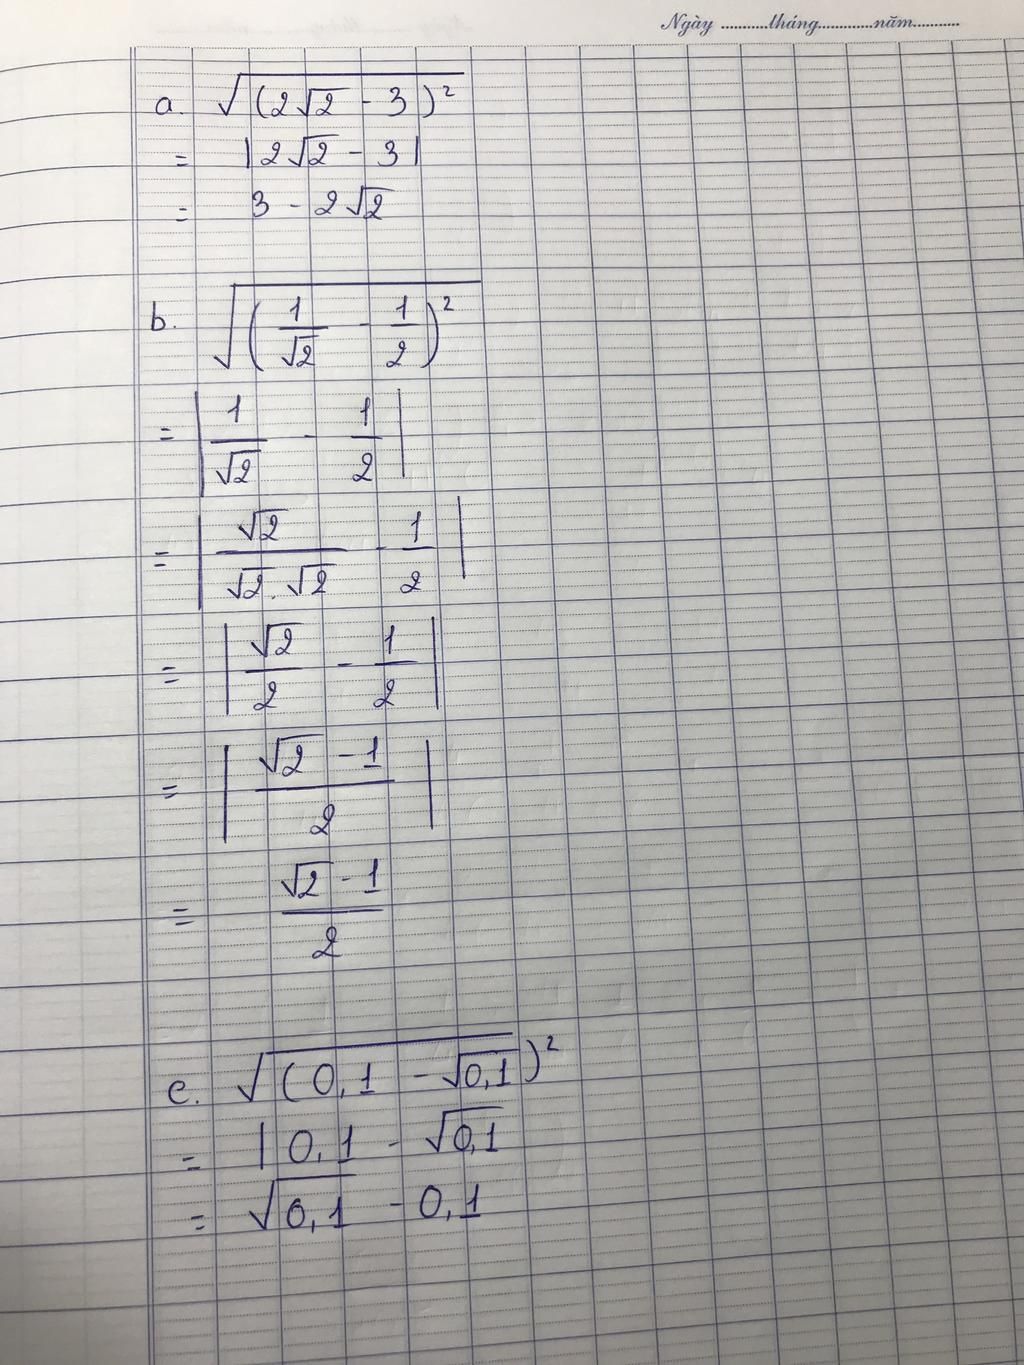 Ngày ............tháng.............năm...........
a. √(2√2 - 3)²
= |2√2 - 3|
= 3 - 2√2
b. √(1/√2 - 1/2)²
= |1/√2 - 1/2|
= |√2/√2.√2 - 1/2|
= |√2/2 - 1/2|
= |√2 - 1/2|
= √2 - 1/2
c. √(0,1 - √0,1)²
= |0,1 - √0,1
= √0,1 - 0,1